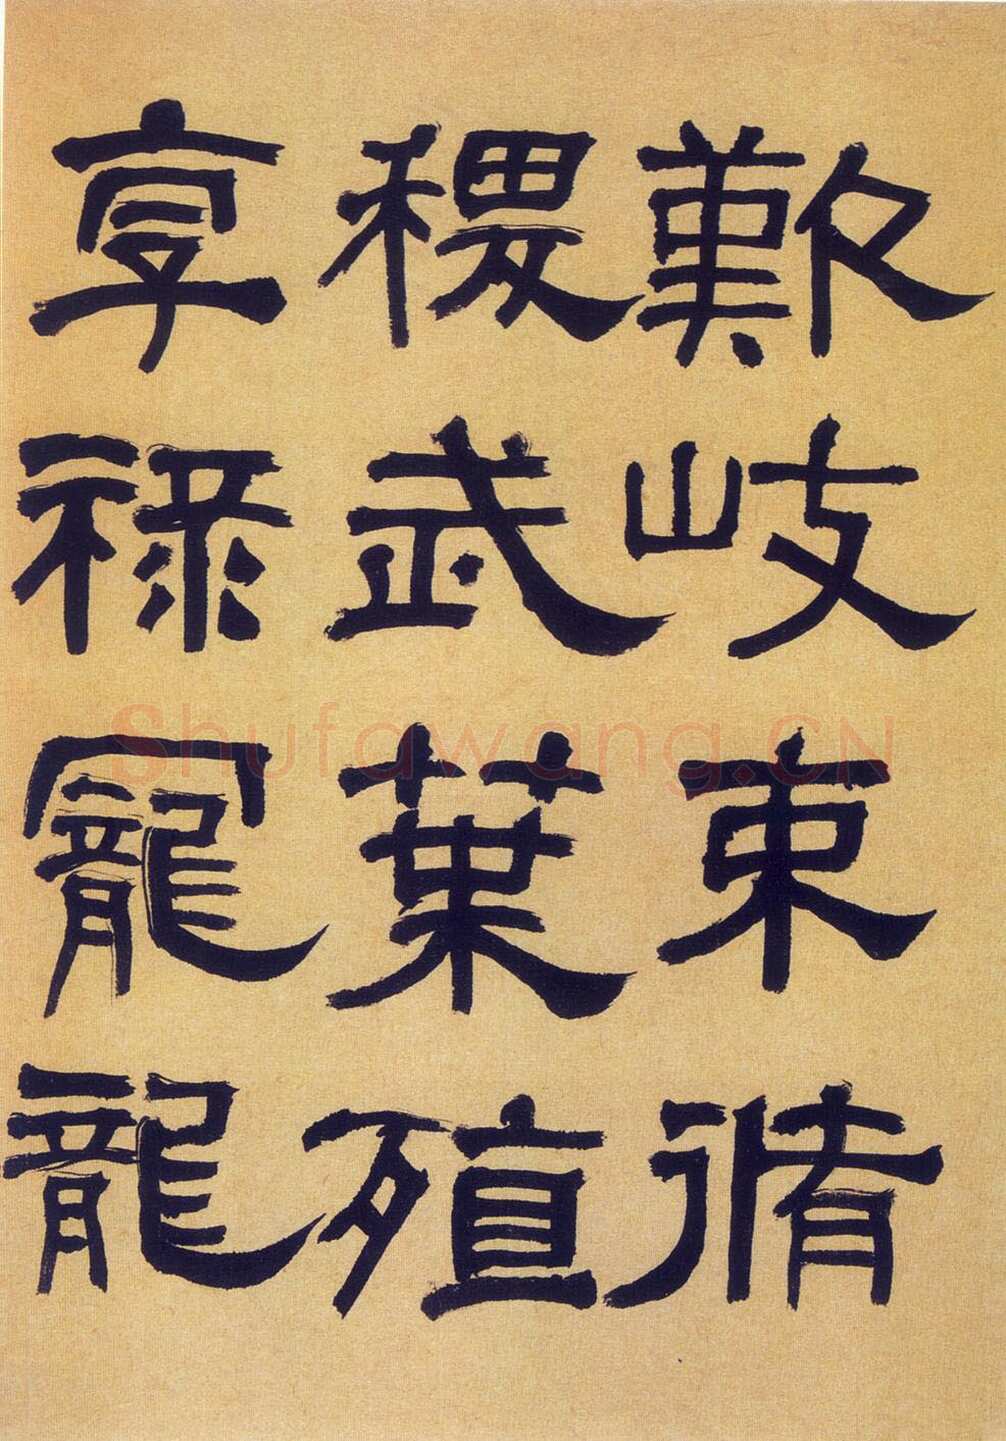 歎岐束脩
稷武葉殖
享祿寵龍
Shufawang.CN